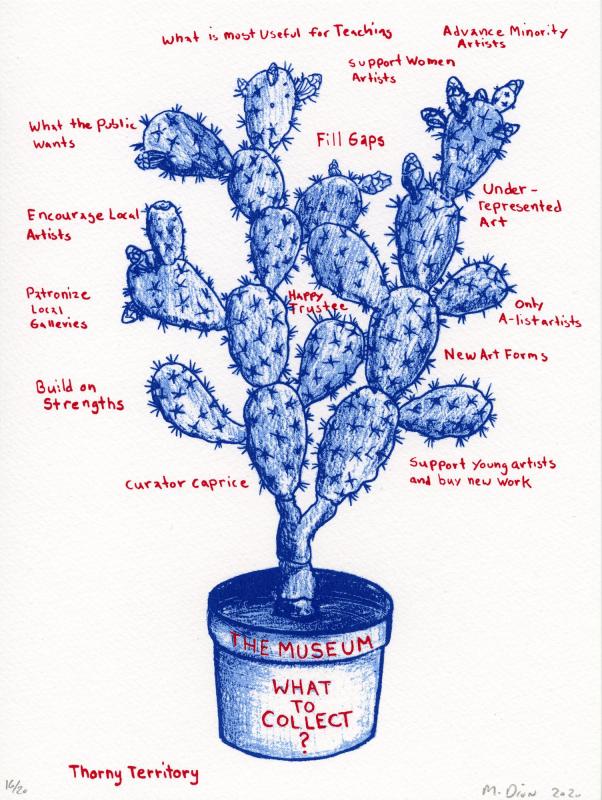 What is most Useful for Teaching
Advance Minority
Artists
Support Women
Artists
What the Public
Wants
Fill Gaps
Under-
represented
Art
Encourage Local
Artists
Patronize
Local
Galleries
Happy
Trustee
Only
A-list artists
New Art Forms
Build on
Strengths
Support Young artists
and buy new work
Curator Caprice
THE MUSEUM
WHAT
TO
COLLECT
?
Thorny Territory
16/20
M. Dion 2020